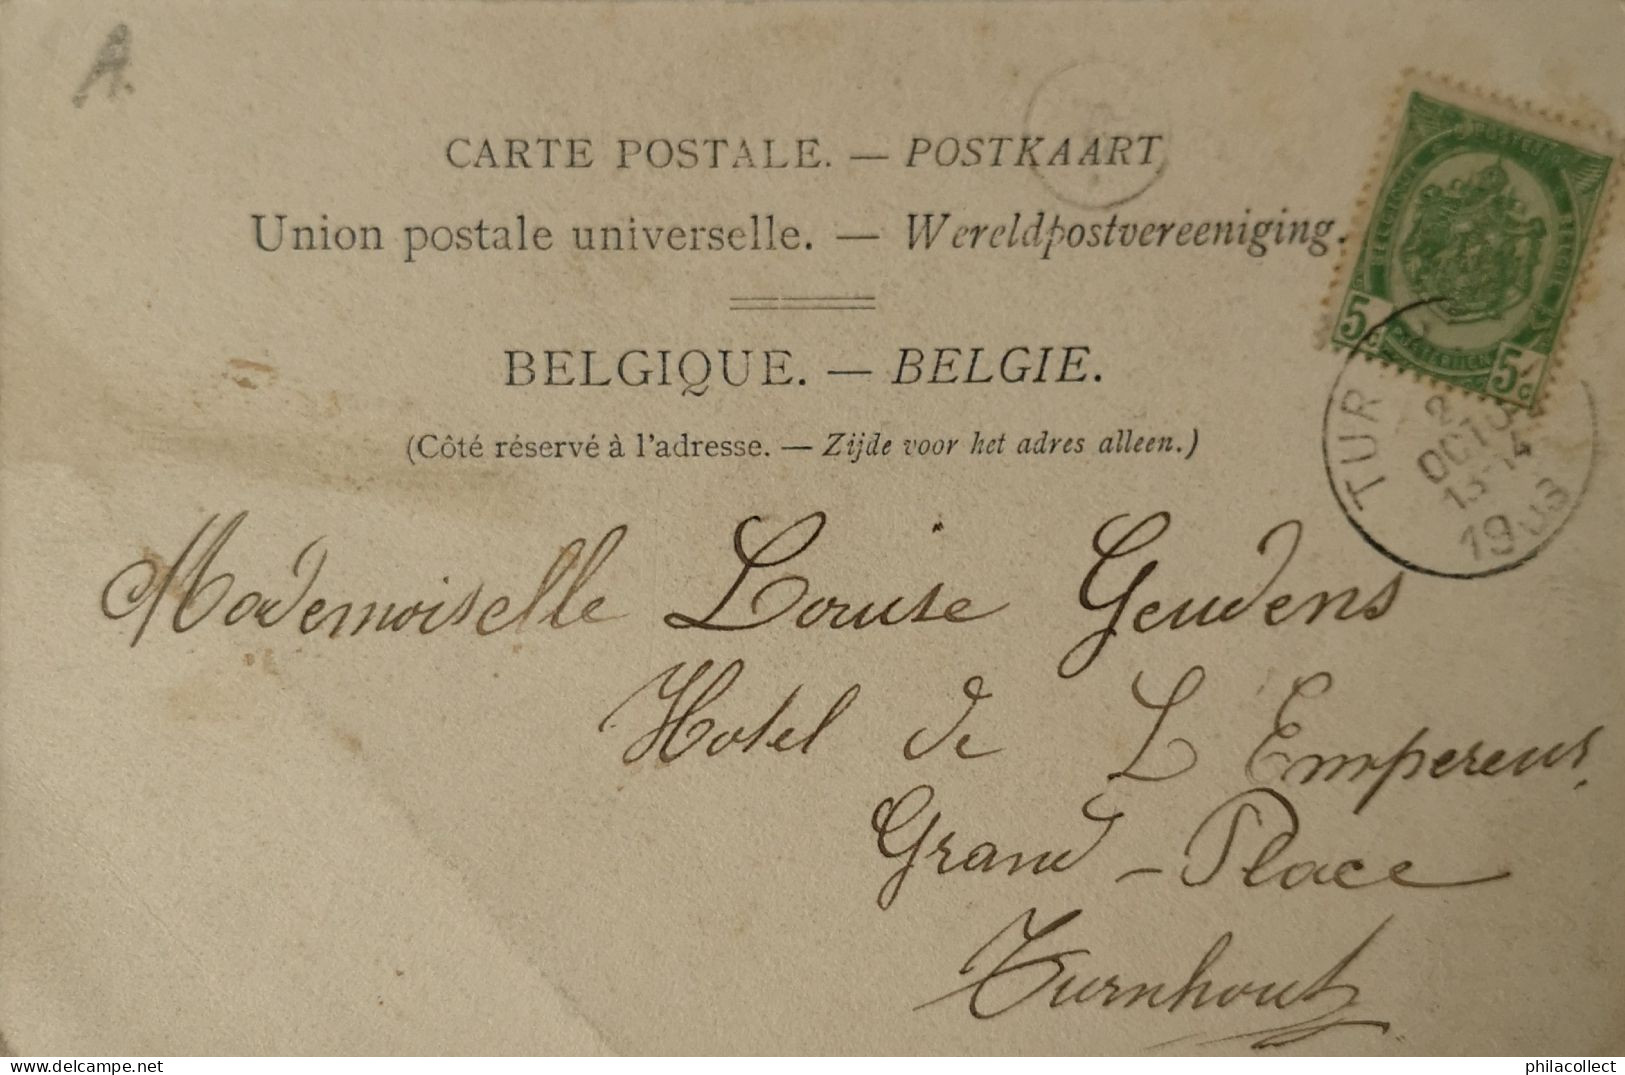 A.
CARTE POSTALE. — POSTKAART
Union postale universelle. — Wereldpostvereeniging.
BELGIQUE. — BELGIE.
(Côté réservé à l'adresse. — Zijde voor het adres alleen.)
5c 5c
TUR
2
OCTO
13-14
1903
Mademoiselle Louise Geudens
Hotel de L Empereur.
Grand-Place
Turnhout
philacollect